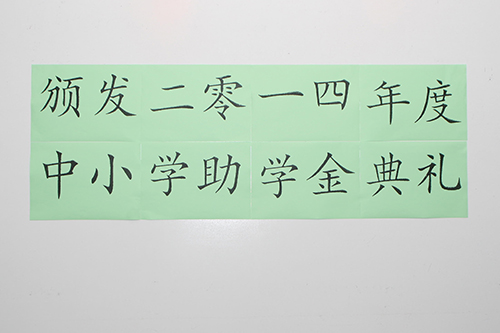 颁发二零一四年度
中小学助学金典礼